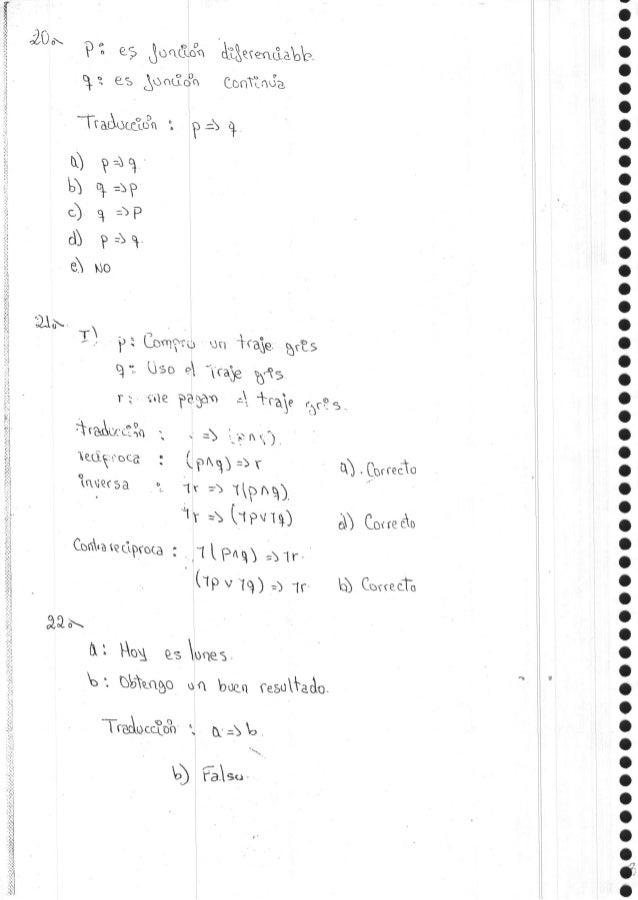 20.
p: es función diferenciable.
q: es función continua
Traducción : p => q
a) p => q
b) q => p
c) q => p
d) p => q.
e) NO
21.
I) p: Compro un traje gris
q: Uso el traje gris
r: me pagan el traje gris.
traducción : => (p∧q).
recíproca : (p∧q) => r a). Correcto
inversa : ┐r => ┐(p∧q).
┐r => (┐p∨┐q) d) Correcto
Contrarecíproca : ┐(p∧q) => ┐r.
(┐p ∨ ┐q) => ┐r b) Correcto
22.
a: Hoy es lunes.
b: Obtengo un buen resultado.
Traducción : a => b.
b) Falso.